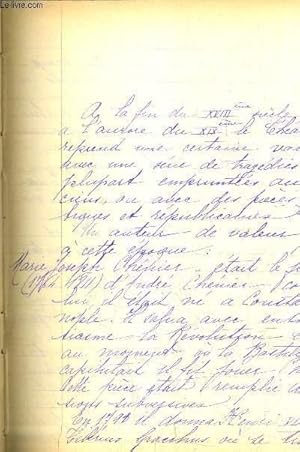 A la fin du XVIIIème siècle
à l'aurore du XIXème le théa
reprend une certaine vo
avec une série de tragédies
plupart empruntées au
ciens, ou avec des pièces
tiques et républicaines
Un auteur de valeur
à cette époque :
Marie Joseph Chénier, était le f
(1764 1811) d'André Chénier
lui, il était né à Consta
nople. Il salua avec entou
siasme la Révolution
au moment où la Bastille
capitulait il fit jouer
cette pièce était remplie
sions subversives.
En 1792 il donna Henri
Caius Gracchus où se